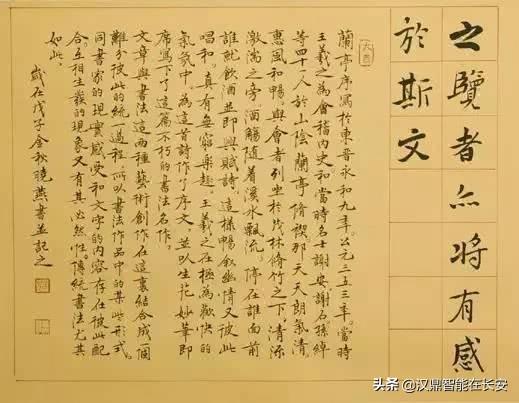 之覽者亦將有感
於斯文
蘭亭序寫於東晉永和九年。公元三五三年。當時
王羲之為會稽內史和當時名士謝安謝石孫綽
等四十一人於山陰蘭亭脩禊那天天朗氣清
惠風和暢。與會者列坐於茂林脩竹之下,清流
激湍之旁酒觴随着溪水飄流。停在誰面前
誰就飲酒並即興賦詩。這樣暢叙幽情又彼此
唱和。真有無窮樂趣。王羲之在極為歡快的
氣氛中。為這首詩作了序文,並以生花妙筆即
席寫下了這篇不朽的書法名作。
文章與書法這兩種藝術創作在這裏結合成一個
難分彼此的統一過程所以書法作品中的某些形式。
同書家的現實感受和文字的內容存在彼此配
合。互相生發的現象又有其必然性。傳統書法尤其
如此。
歲在戊子金秋曉燕書並記之
头条 @汉鼎智能在长安